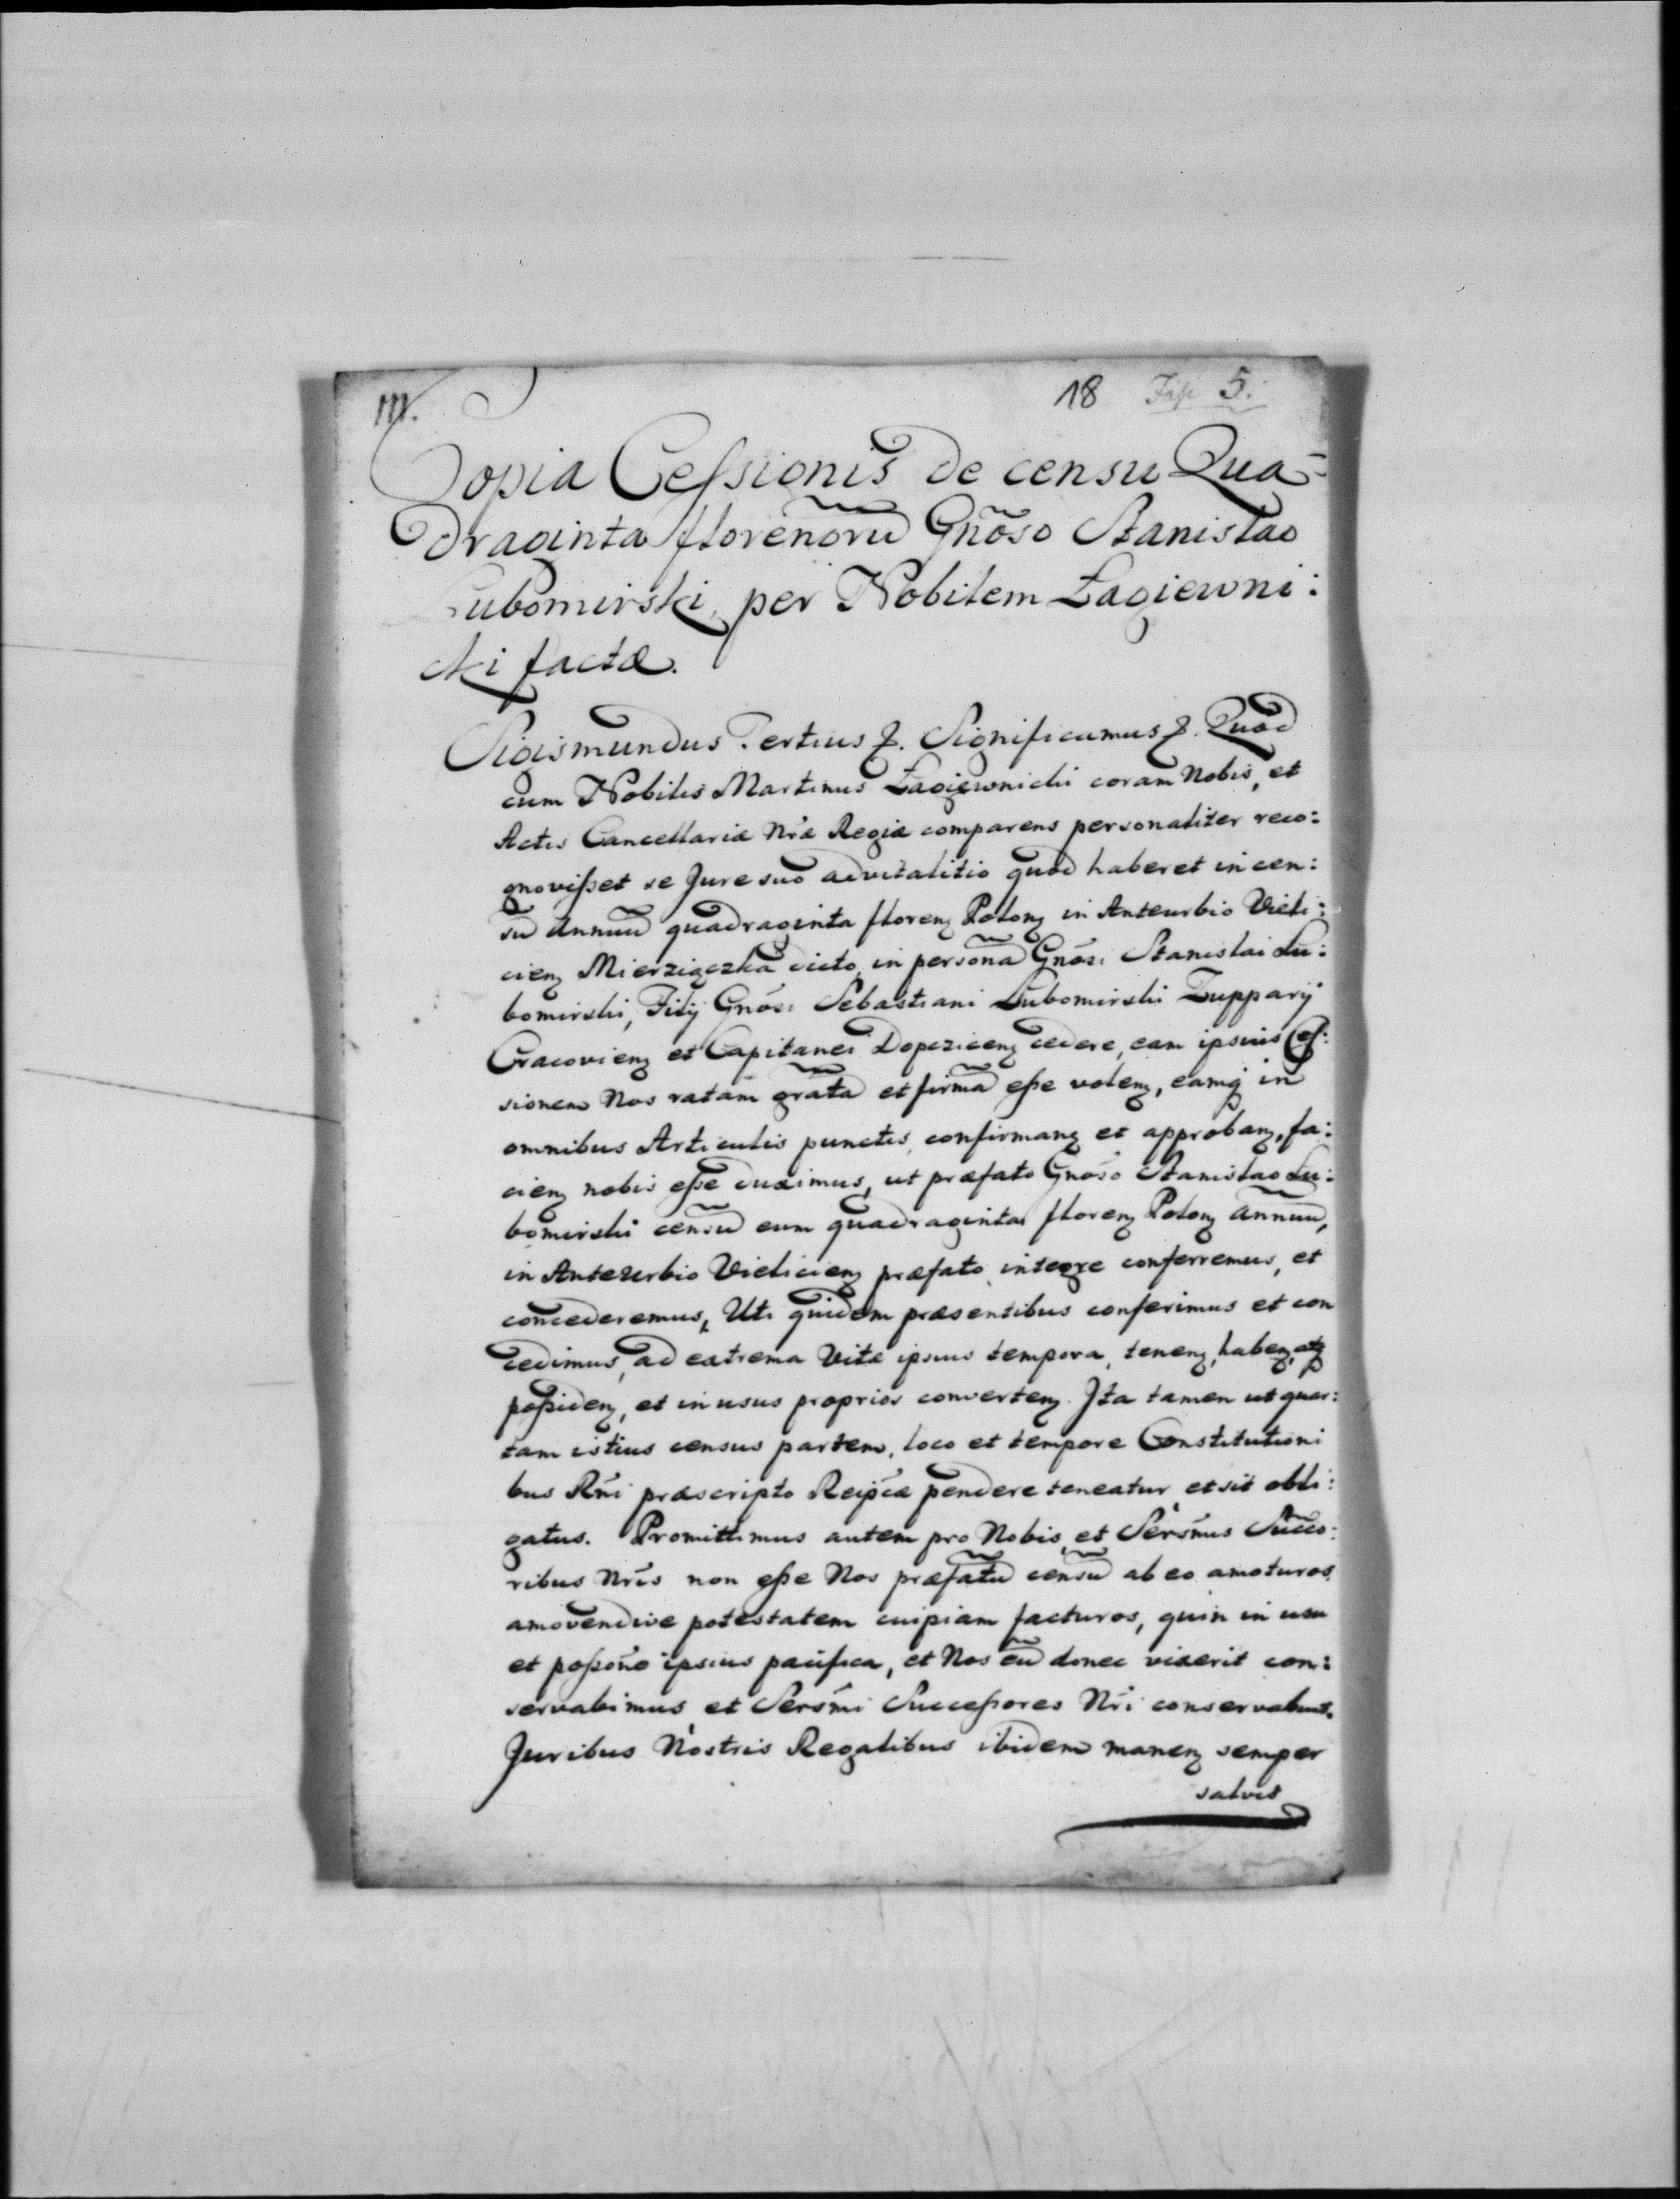 m.
18 Fasc 5.
Copia Cessionis de censu Qua-
draginta florenorũ Gnõso Stanislao
Lubomirski, per Nobilem Łagiewni:
cki factæ.
Sigismundus Tertius &. Significamus &. Quod
cum Nobilis Martinus Łagiewnicki coram Nobis, et
Actis Cancellariæ Nræ Regiæ comparens personaliter reco:
gnovisset se Jure suo advitalitio quod haberet in cen:
su Annuũ quadraginta florenꝫ Polonꝫ in Anteurbio Vieli:
cienꝫ Mierziączka dicto, in personã Gnõsi Stanislai Lu:
bomirski, Filij Gnõsi Sebastiani Lubomirski Zupparij
Cracovienꝫ et Capitanei Dopczicenꝫ cedere, eam ipsius Ces:
sionem Nos ratam gratã et firmã esse volenꝫ, eamqꝫ in
omnibus Articulis punctis, confirmanꝫ et approbanꝫ, fa:
cienꝫ nobis esse duximus, ut præfato Gnõso Stanislao Lu:
bomirski censũ eum quadraginta florenꝫ Polonꝫ Annuũ,
in Anteurbio Vielicienꝫ præfato integre conferremus, et
concederemus, Uti quidem præsentibus conferimus et con
cedimus, ad extrema Vitæ ipsius tempora, tenenꝫ, habenꝫ, atqꝫ
possidenꝫ, et in usus proprios convertenꝫ. Ita tamen ut quar:
tam istius census partem, loco et tempore Constitutioni
bus Rñi præscripto Reipcæ pendere teneatur et sit obli:
gatus. Promittimus autem pro Nobis, et Sersmus Succo:
ribus Nris non esse Nos præfatũ censũ ab eo amoturos
amovendive potestatem cuipiam facturos, quin in usu
et possoñe ipsius pacifica, et Nos eũ donec vixerit con:
servabimus et Sersmi Successores Nri conservabunt.
Juribus Nostris Regalibus ibidem manenꝫ semper
salvis